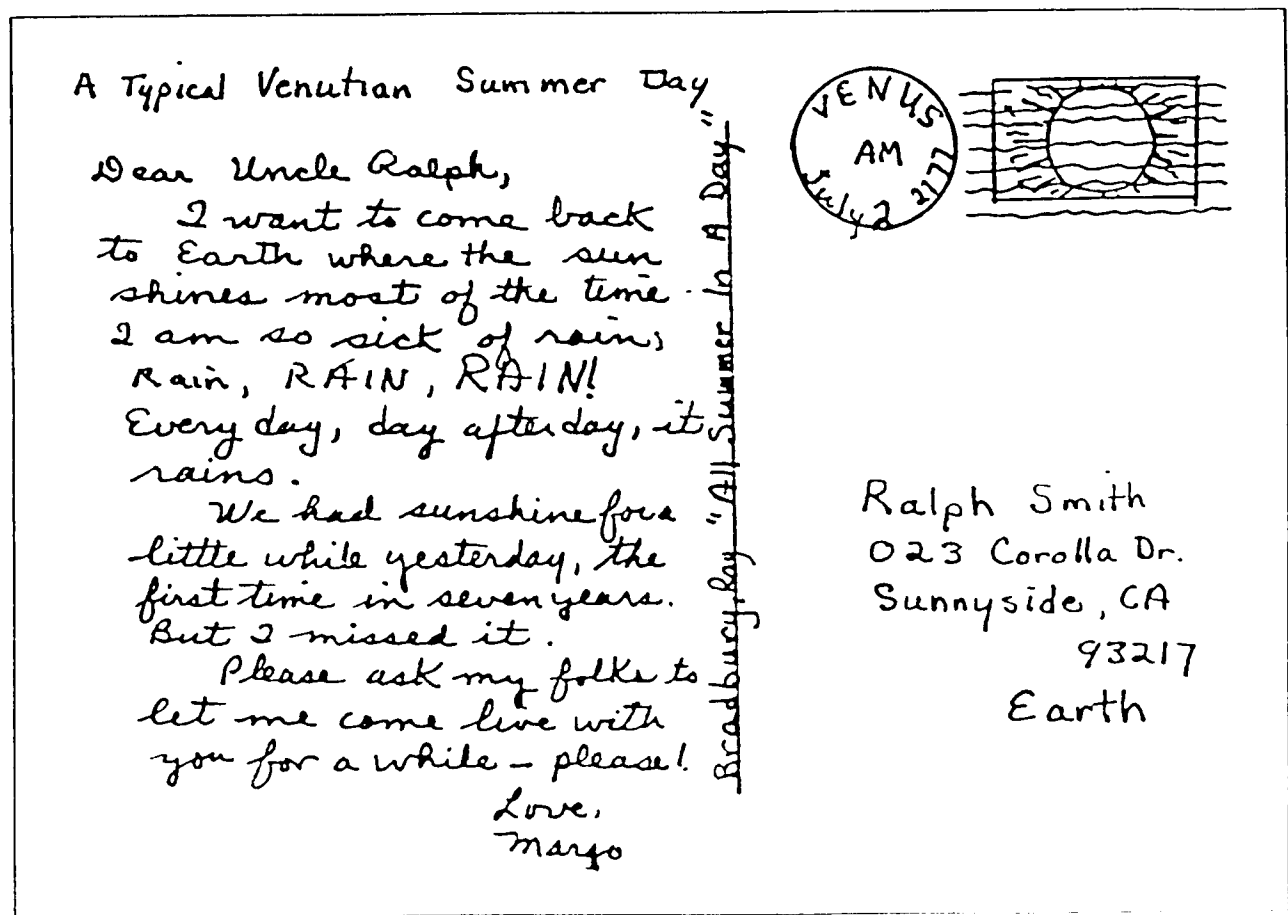 A Typical Venutian Summer Day
Dear Uncle Ralph,
I want to come back
to Earth where the sun
shines most of the time.
I am so sick of rain,
Rain, RAIN, RAIN!
Every day, day after day, it
rains.
We had sunshine for a
little while yesterday, the
first time in seven years.
But I missed it.
Please ask my folks to
let me come live with
you for a while - please!
Love,
Margo
Bradbury, Ray "All Summer In A Day"
VENUS
AM
July 2 2177
Ralph Smith
023 Corolla Dr.
Sunnyside, CA
93217
Earth